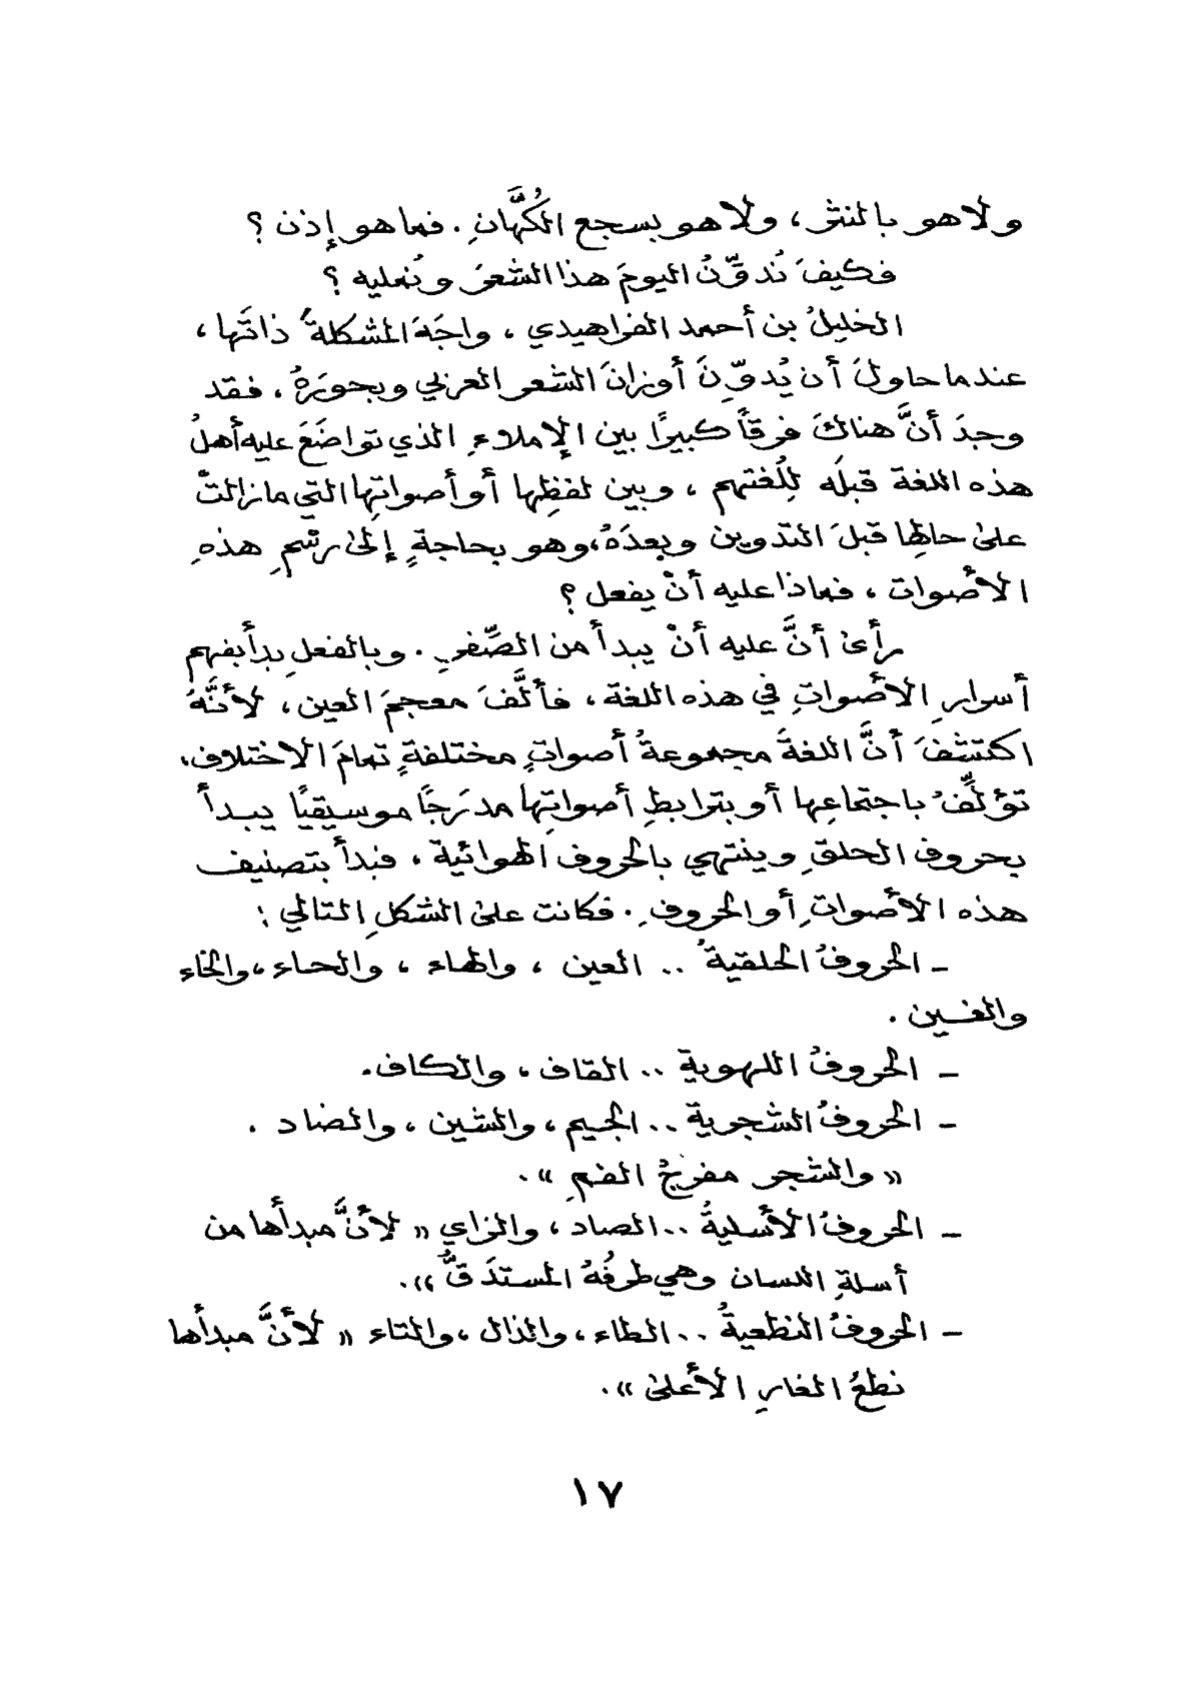 ولا هو بالنثر، ولا هو بسجع الكُهَّانِ. فما هو إذن ؟
فكيفَ نُدوِّنُ اليومَ هذا الشعرَ ونُمليه ؟
الخليلُ بن أحمد الفراهيدي ، واجَهَ المشكلةَ ذاتَها ،
عندما حاولَ أن يُدوِّنَ أوزانَ الشعر العربي وبحورَهُ ، فقد
وجدَ أنَّ هناكَ فرقاً كبيرًا بين الإملاءِ الذي تواضَعَ عليه أهلُ
هذه اللغة قبلَه لِلُغتهم ، وبين لفظِها أو أصواتِها التي مازالتْ
على حالِها قبلَ التدوين وبعدَهُ، وهو بحاجةٍ إلى رسْمِ هذهِ
الأصوات ، فماذا عليه أنْ يفعل ؟
رأى أنَّ عليه أنْ يبدأ من الصِّفرِ . وبالفعلِ بدأ بفهم
أسرارِ الأصواتِ في هذه اللغة ، فألَّفَ معجمَ العين ، لأنَّهُ
اكتشفَ أنَّ اللغةَ مجموعةُ أصواتٍ مختلفةٍ تمامَ الاختلاف،
تؤلِّفُ باجتماعِها أو بترابطِ أصواتِها مدرَجًا موسيقيًا يبدأ
بحروف الحلقِ وينتهي بالحروف الهوائية ، فبدأ بتصنيف
هذه الأصواتِ أو الحروفِ . فكانت على الشكلِ التالي :
- الحروفُ الحلقيةُ .. العين ، والهاء ، والحاء ، والخاء
والغين .
- الحروفُ اللهوية .. القاف ، والكاف.
- الحروفُ الشجرية .. الجيم ، والشين ، والضاد .
« والشجر مفرجُ الفمِ » .
- الحروفُ الأسليةُ .. الصاد ، والزاي « لأنَّ مبدأها من
أسلةِ اللسان وهي طرفُهُ المستدَقُّ ».
- الحروفُ النطعيةُ .. الطاء ، والذال ، والتاء « لأنَّ مبدأها
نطعُ الغارِ الأعلى ».
١٧